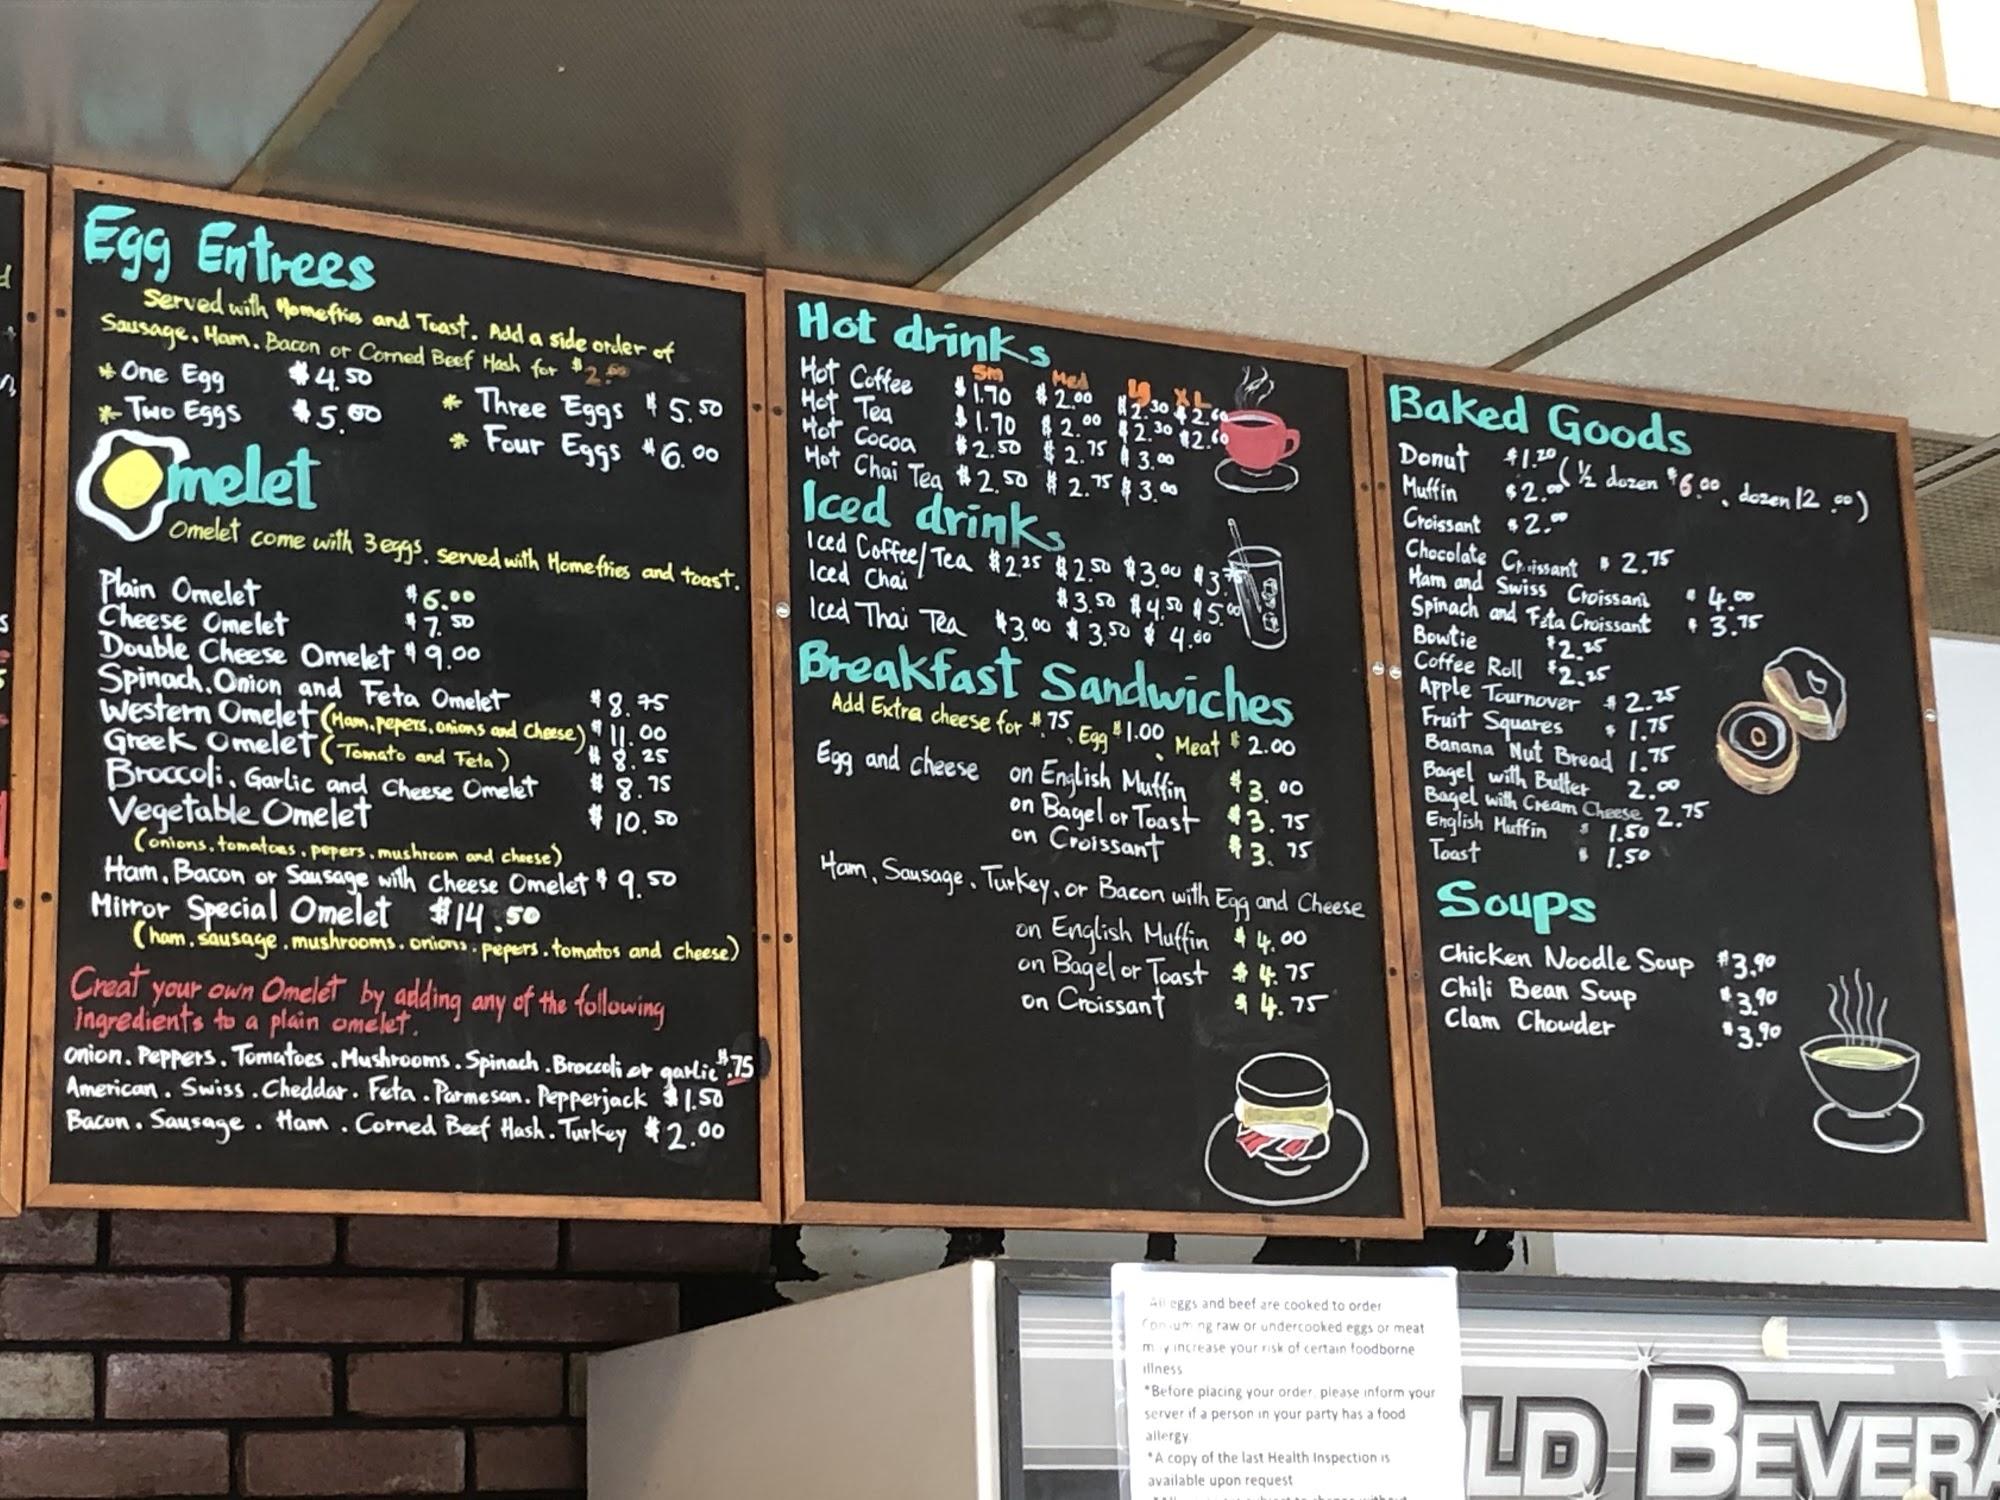 Egg Entrees
Served with Homefries and Toast. Add a side order of
Sausage, Ham, Bacon or Corned Beef Hash for $2.00
* One Egg $4.50
* Two Eggs $5.00
* Three Eggs $5.50
* Four Eggs $6.00
Omelet
Omelet come with 3 eggs, served with Homefries and toast.
Plain Omelet $6.00
Cheese Omelet $7.50
Double Cheese Omelet $9.00
Spinach, Onion and Feta Omelet $8.75
Western Omelet (Ham, pepers, onions and Cheese) $11.00
Greek Omelet (Tomato and Feta) $8.25
Broccoli, Garlic and Cheese Omelet $8.75
Vegetable Omelet $10.50
(onions, tomatoes, pepers, mushroom and cheese)
Ham, Bacon or Sausage with Cheese Omelet $9.50
Mirror Special Omelet $14.50
(ham, sausage, mushrooms, onions, pepers, tomatos and cheese)
Creat your own Omelet by adding any of the following
ingredients to a plain omelet.
Onion. Peppers. Tomatoes. Mushrooms. Spinach. Broccoli or garlic $.75
American. Swiss. Cheddar. Feta. Parmesan. Pepperjack $1.50
Bacon. Sausage. Ham. Corned Beef Hash. Turkey $2.00
Hot drinks
Sm Med Lg XL
Hot Coffee $1.70 $2.00 $2.30 $2.60
Hot Tea $1.70 $2.00 $2.30 $2.60
Hot Cocoa $2.50 $2.75 $3.00
Hot Chai Tea $2.50 $2.75 $3.00
Iced drinks
Iced Coffee/Tea $2.25 $2.50 $3.00
Iced Chai $3.50 $4.50 $5.00
Iced Thai Tea $3.00 $3.50 $4.00
Breakfast Sandwiches
Add Extra cheese for $.75, Egg $1.00, Meat $2.00
Egg and cheese on English Muffin $3.00
on Bagel or Toast $3.75
on Croissant $3.75
Ham, Sausage, Turkey, or Bacon with Egg and Cheese
on English Muffin $4.00
on Bagel or Toast $4.75
on Croissant $4.75
Baked Goods
Donut $1.20 (1/2 dozen $6.00, dozen 12.00)
Muffin $2.00
Croissant $2.00
Chocolate Croissant $2.75
Ham and Swiss Croissant $4.00
Spinach and Feta Croissant $3.75
Bowtie $2.25
Coffee Roll $2.25
Apple Tournover $2.25
Fruit Squares $1.75
Banana Nut Bread 1.75
Bagel with Butter 2.00
Bagel with Cream Cheese 2.75
English Muffin $1.50
Toast $1.50
Soups
Chicken Noodle Soup $3.90
Chili Bean Soup $3.90
Clam Chowder $3.90
All eggs and beef are cooked to order
Consuming raw or undercooked eggs or meat
may increase your risk of certain foodborne
illness
*Before placing your order, please inform your
server if a person in your party has a food
allergy
*A copy of the last Health Inspection is
available upon request
LD BEVERA